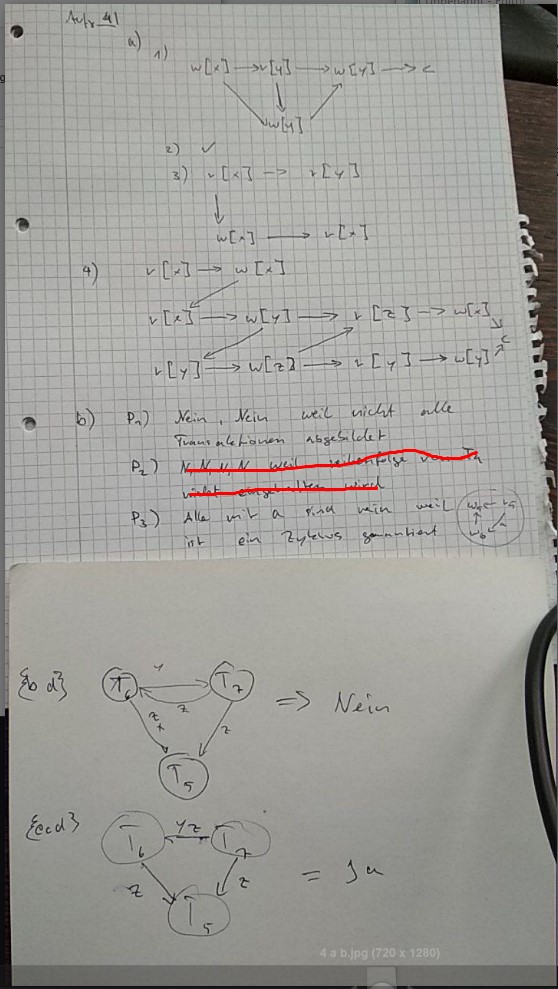 Aufg. 41
a)
1)
w[x] → r[y] → w[y] → c
w[y]
2) ✓
3) r[x] → r[y]
w[x] → r[x]
4) r[x] → w[x]
r[x] → w[y] → r[z] → w[x]
c
r[y] → w[z] → r[y] → w[y]
b) P1) Nein, Nein weil nicht alle
Transaktionen abgebildet
P2) N, N, N, N weil reihenfolge von T4
nicht eingehalten wird
P3) Alle mit a sind nein weil
ist ein Zyklus garantiert
{b d}
T6 y T7
z
z x
z
T5
=> Nein
{c d}
T6 yz T7
z z
T5
= Ja
4 a b.jpg (720 x 1280)